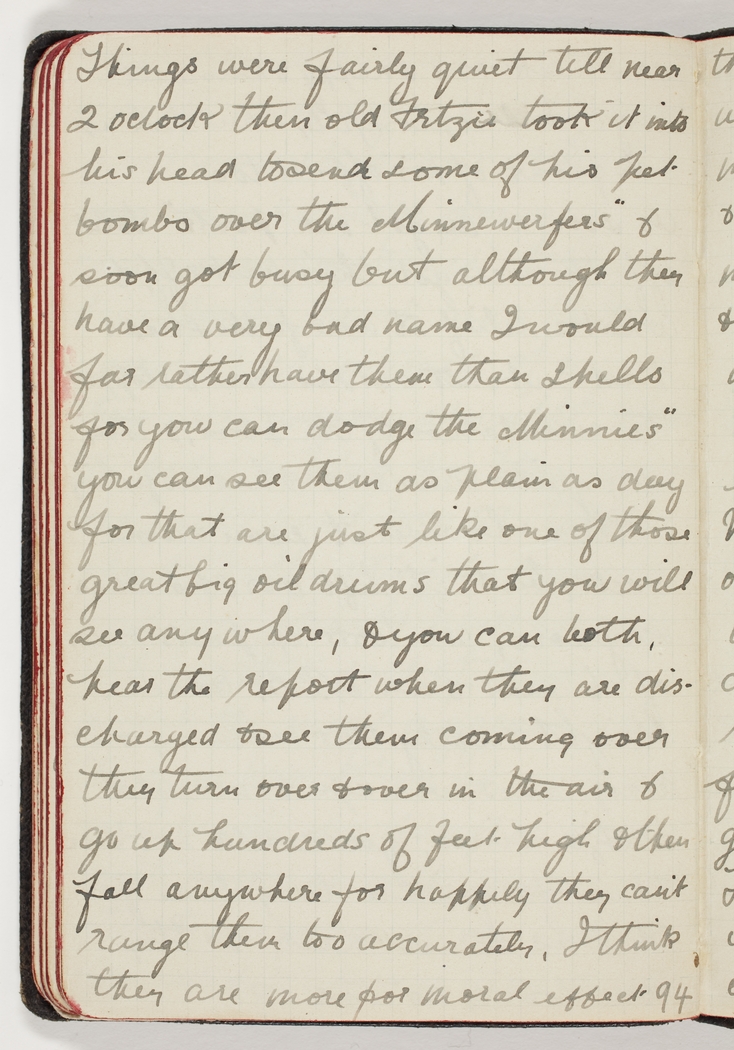 Things were fairly quiet till near
2 oclock then old Fritzie took it into
his head to send some of his pet
bombs over the Minnewerfers" &
soon got busy but although they
have a very bad name I would
far rather have them than shells
for you can dodge the Minnies"
you can see them as plain as day
for that are just like one of those
great big oil drums that you will
see any where, & you can both,
hear the report when they are dis-
charged & see them coming over
they turn over & over in the air &
go up hundreds of feet high & then
fall anywhere for happily they can't
range them too accurately, I think
they are more for moral effect 94